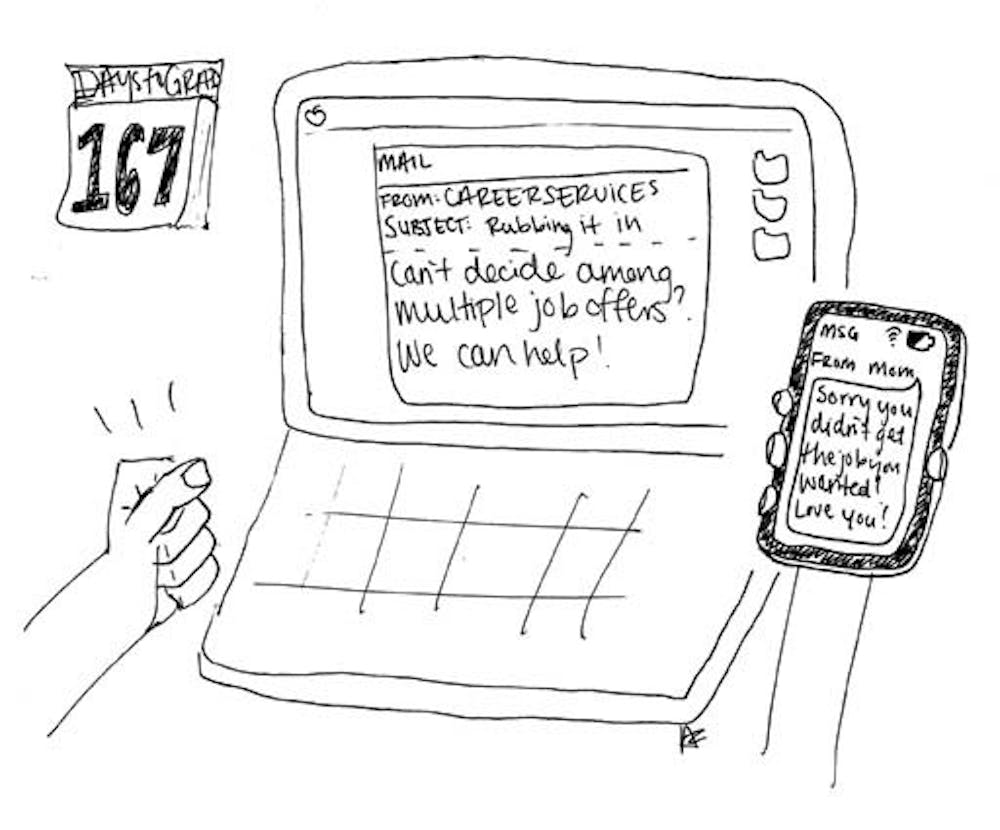 DAYS to GRAD
167
MAIL
FROM: CAREER SERVICES
SUBJECT: Rubbing it in
Can't decide among
multiple job offers?
We can help!
MSG
From Mom
Sorry you
didn't get
the job you
wanted!
Love you!